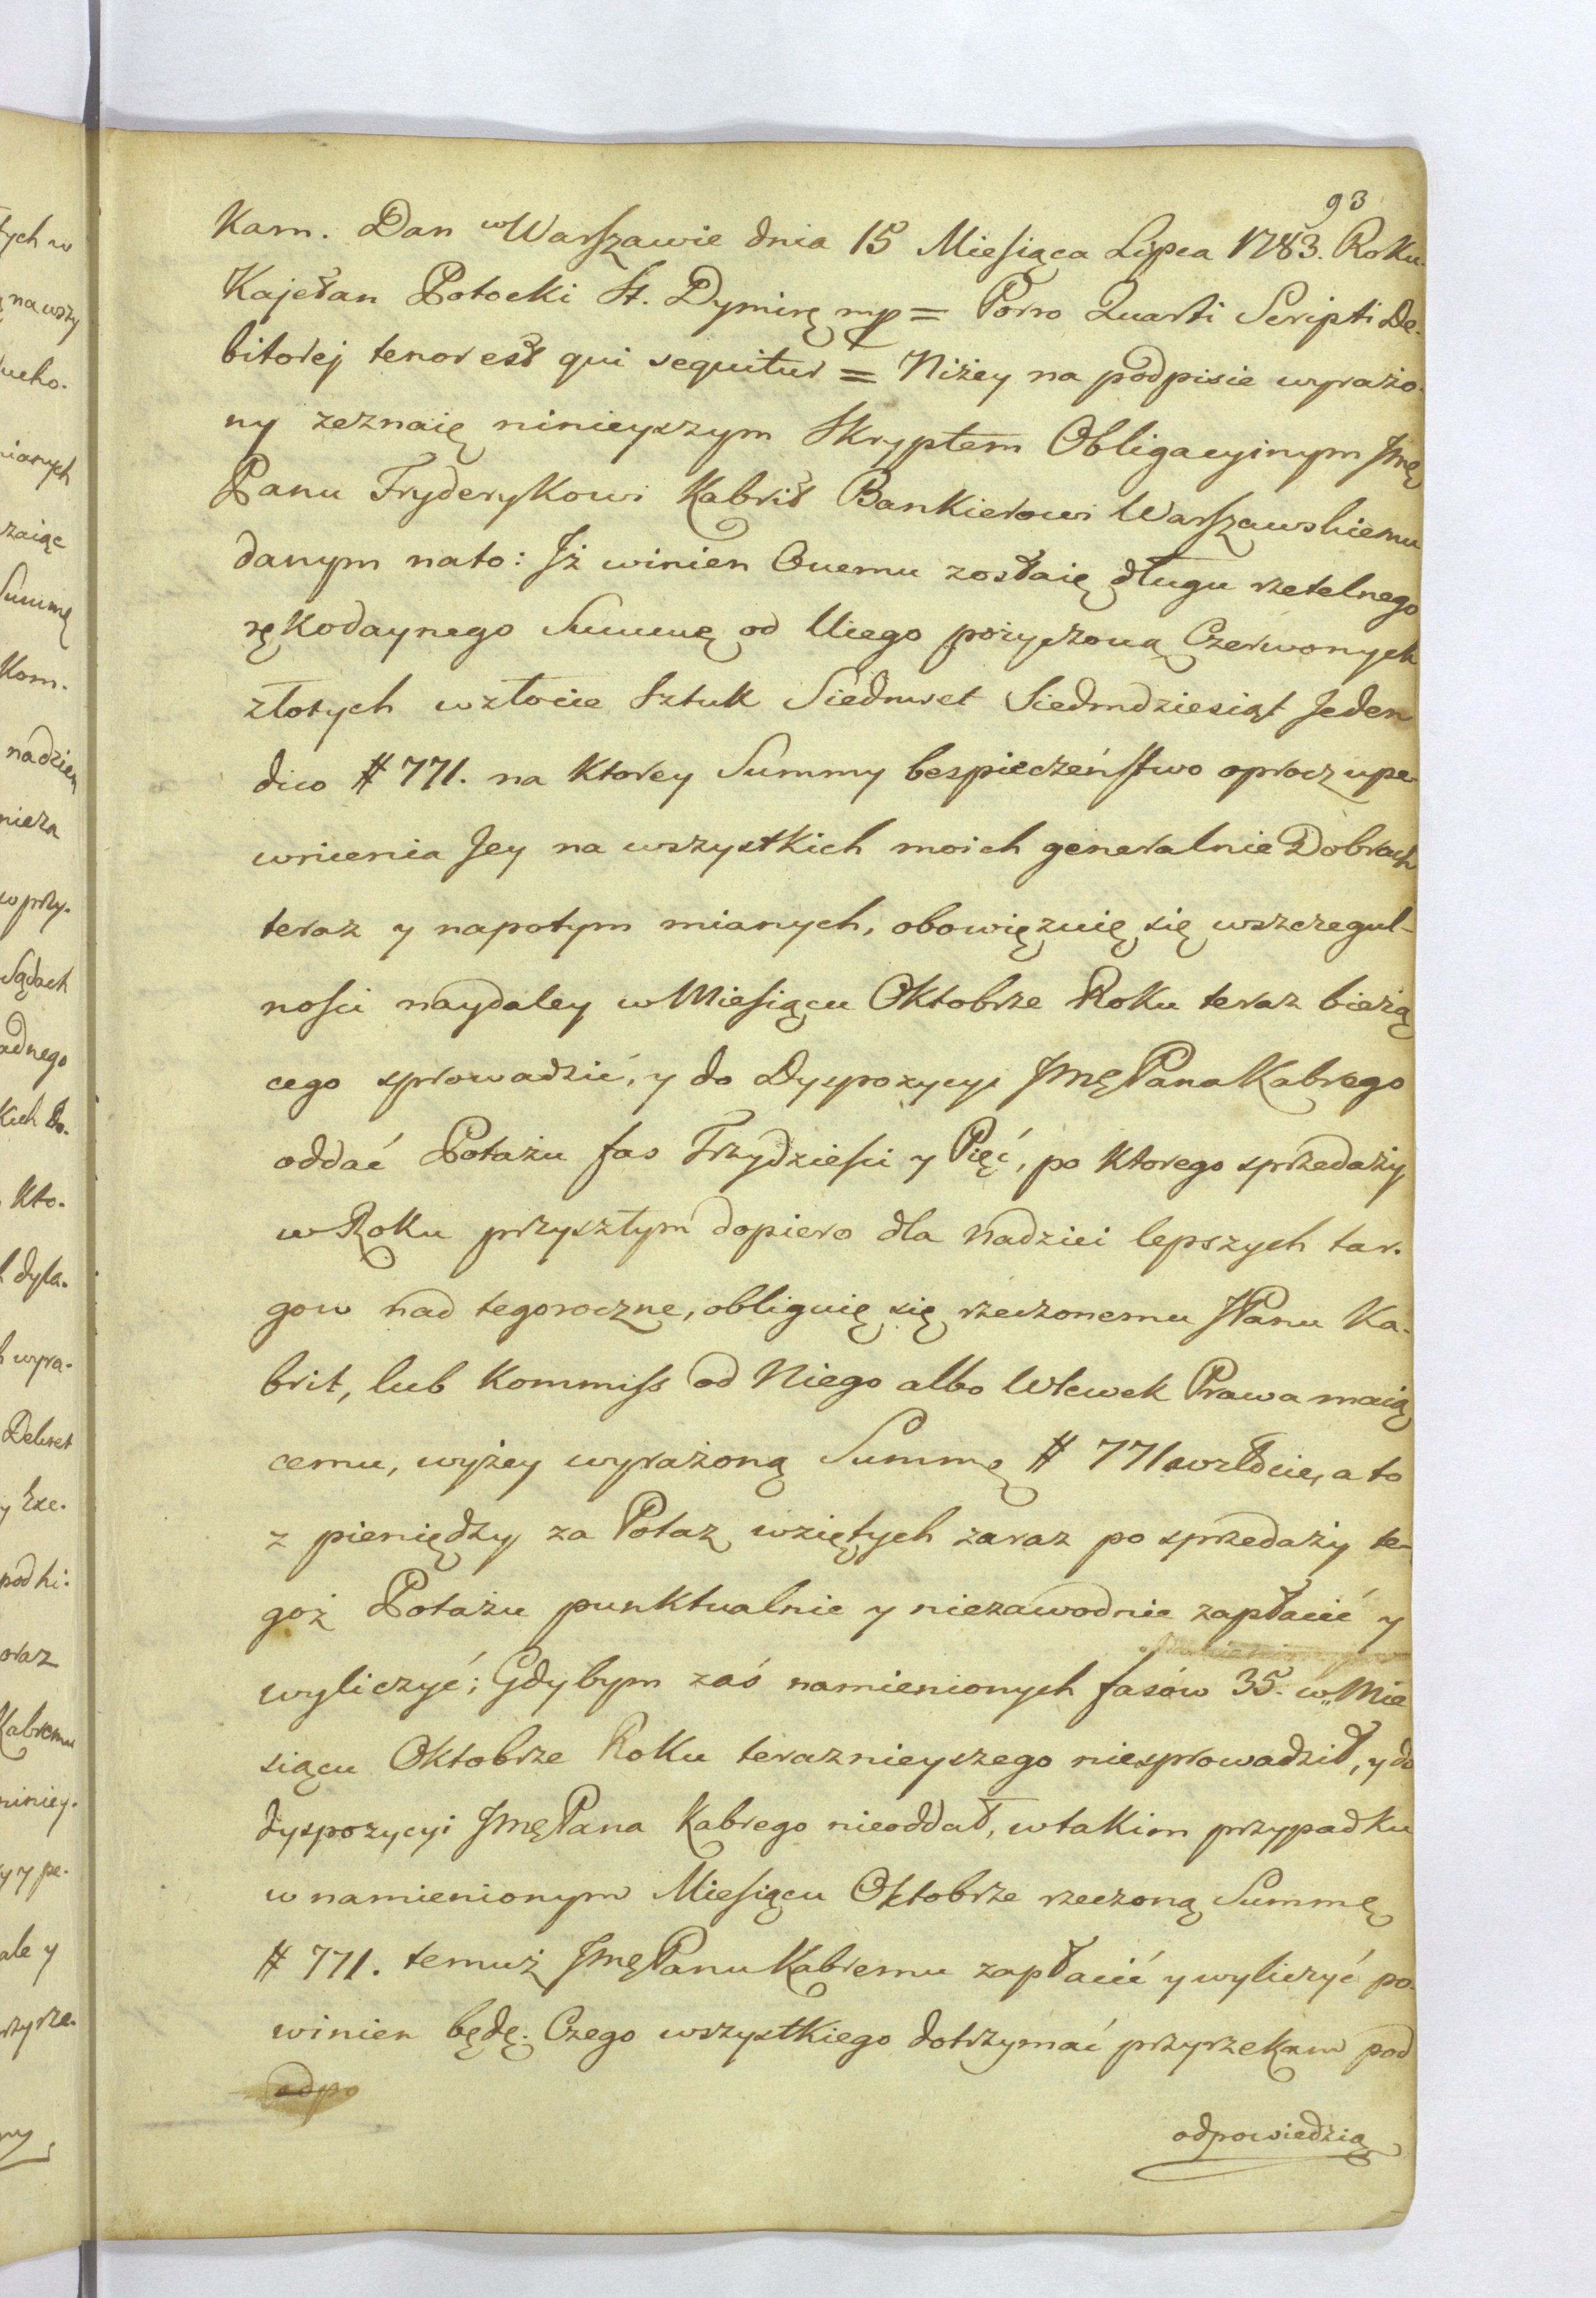 93
Kam. Dan w Warszawie dnia 15 Miesiąca Lipca 1783. Roku.
Kajetan Potocki St. Dymirę mp = Porro Quarti Scripti De-
bitorej tenor est qui sequitur = Niżey na podpisie wyrażo-
ny zeznaię ninieyszym Skryptem Obligacyinym Jmę
Panu Fryderykowi Kabrit Bankierowi Warszawskiemu
danym nato: Jż winien Onemu zostaię długu rzetelnego
rękodaynego Summę od Niego pożyczoną Czerwonych
złotych w złocie Sztuk Siedmset Siedmdziesiąt Jeden
dico # 771. na ktorey Summy bespieczeństwo oprocz upe-
wnienia Jey na wszystkich moich generalnie Dobrach
teraz y napotym mianych, obowięzuię się wszczegul-
ności naydaley w Miesiącu Oktobrze Roku teraz bieżą
cego sprowadzić, y do Dyspozycyi Jmę Pana Kabrego
oddać Potażu fas Trzydzieści y Pięć, po ktorego sprzedaży
w Roku przyszłym dopiero dla nadziei lepszych tar-
gow nad tegoroczne, obliguię się rzeczonemu JPanu Ka-
brit, lub Kommiss od Niego albo Wlewek Prawa maią
cemu, wyżey wyrażoną Summę # 771 w złocie, a to
z pieniędzy za Potaż wziętych zaraz po sprzedaży te-
goż Potażu punktualnie y niezawodnie zapłacić y
wyliczyć; Gdybym zaś namienionych fasów 35. w Mie
siącu Oktobrze Roku teraznieyszego niesprowadził, y do
dyspozycyi Jmę Pana Kabrego nieoddał, w takim przypadku
w namienionym Miesiącu Oktobrze rzeczoną Summę
# 771. temuż Jmę Panu Kabremu zapłacić y wyliczyć po-
winien będę. Czego wszystkiego dotrzymać przyrzekam pod
odpo
odpowiedzią